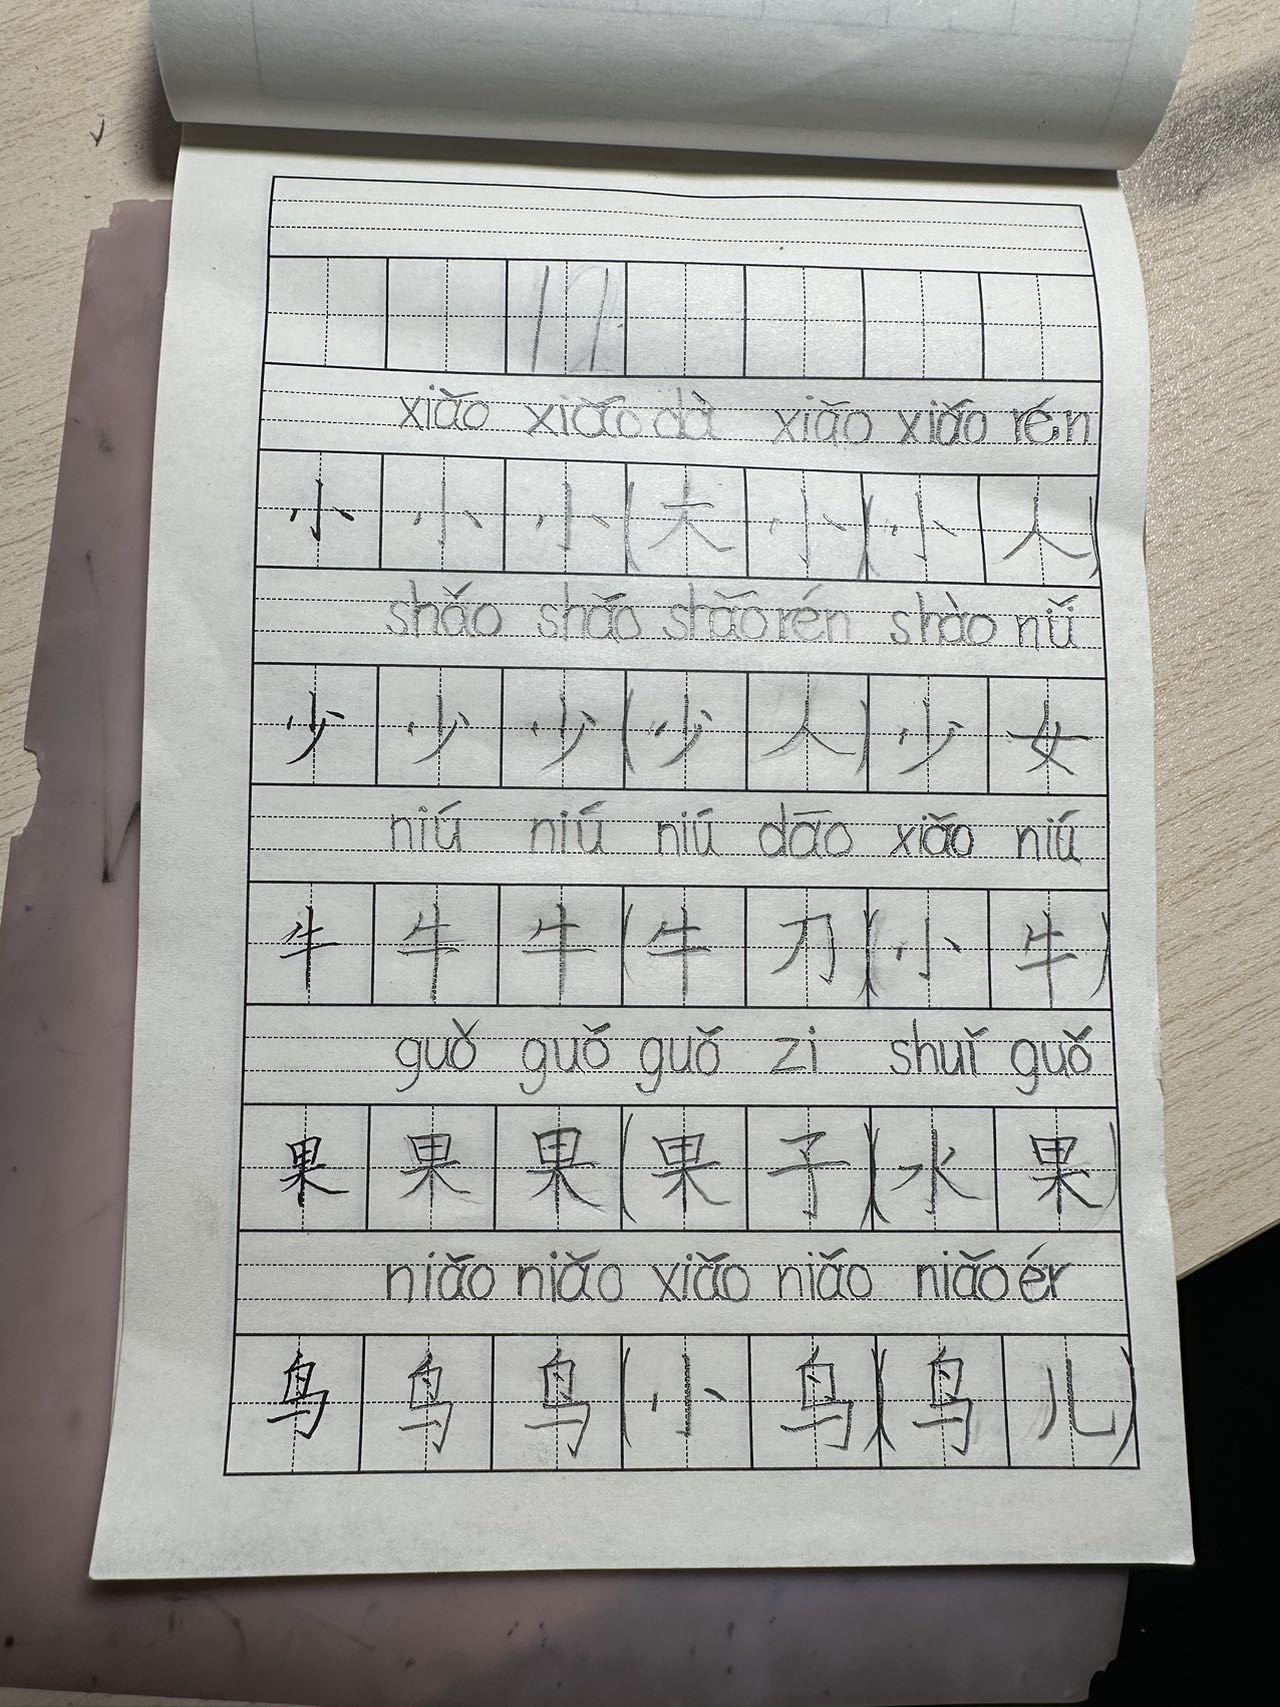 12
xiǎo xiǎo dà xiǎo xiǎo rén
小 小 小 (大 小) (小 人)
shǎo shǎo shǎo rén shào nǚ
少 少 少 (少 人) 少 女
niú niú niú dāo xiǎo niú
牛 牛 牛 (牛 刀) (小 牛)
guǒ guǒ guǒ zi shuǐ guǒ
果 果 果 (果 子) (水 果)
niǎo niǎo xiǎo niǎo niǎo ér
鸟 鸟 鸟 (小 鸟) (鸟 儿)